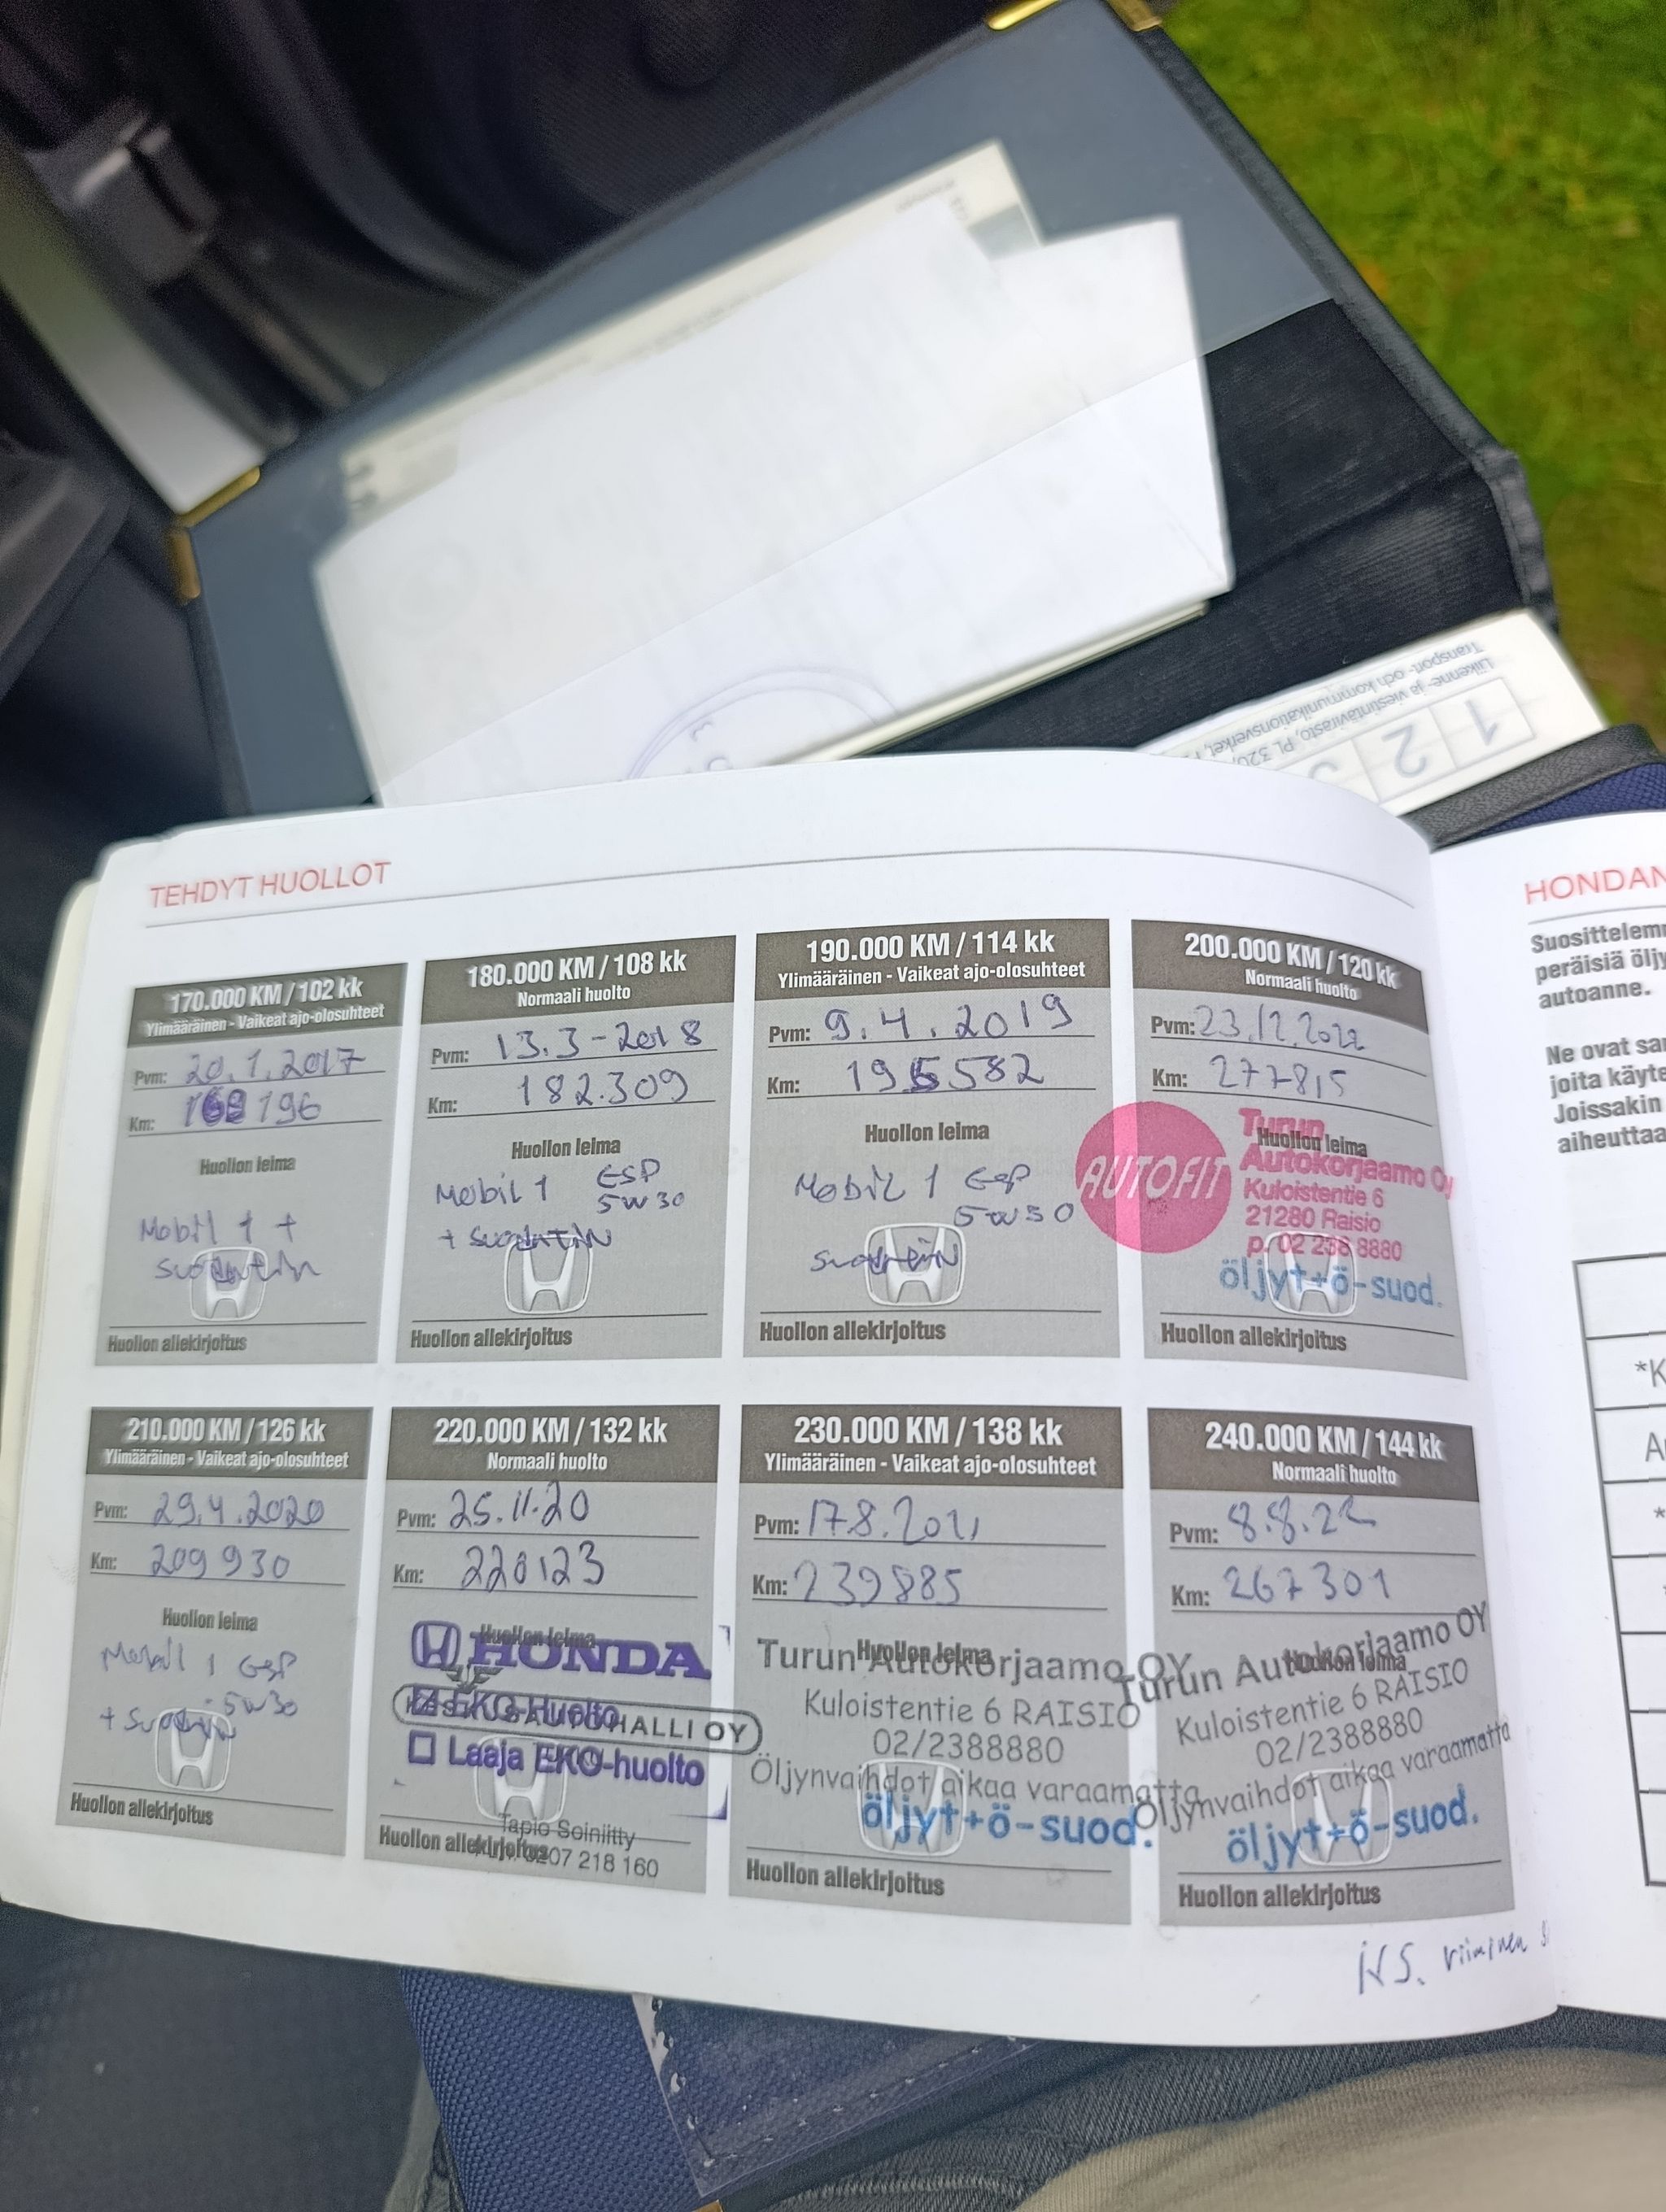 Liikenne- ja viestintävirasto, PL 320,
Transport- och kommunikationsverket,
1 2 3
TEHDYT HUOLLOT
170.000 KM / 102 kk
Ylimääräinen - Vaikeat ajo-olosuhteet
Pvm: 20.1.2017
Km: 168 196
Huollon leima
Mobil 1 +
suodatin
Huollon allekirjoitus
180.000 KM / 108 kk
Normaali huolto
Pvm: 13.3-2018
Km: 182.309
Huollon leima
Mobil 1 ESP
5W30
+ suodatin
Huollon allekirjoitus
190.000 KM / 114 kk
Ylimääräinen - Vaikeat ajo-olosuhteet
Pvm: 9.4.2019
Km: 195582
Huollon leima
Mobil 1 ESP
5W30
suodatin
Huollon allekirjoitus
200.000 KM / 120 kk
Normaali huolto
Pvm: 23.12.2022
Km: 277815
Huollon leima
AUTOFIT
Turun
Autokorjaamo Oy
Kuloistentie 6
21280 Raisio
p. 02 238 8880
öljyt+ö-suod.
Huollon allekirjoitus
210.000 KM / 126 kk
Ylimääräinen - Vaikeat ajo-olosuhteet
Pvm: 29.4.2020
Km: 209 930
Huollon leima
Mobil 1 ESP
5W30
+ suodatin
Huollon allekirjoitus
220.000 KM / 132 kk
Normaali huolto
Pvm: 25.11.20
Km: 220123
Huollon leima
HONDA
EKO-Huolto
AUTOHALLI OY
Laaja EKO-huolto
Tapio Soiniitty
Huollon allekirjoitus
0207 218 160
230.000 KM / 138 kk
Ylimääräinen - Vaikeat ajo-olosuhteet
Pvm: 17.8.2021
Km: 239885
Huollon leima
Turun Autokorjaamo OY
Kuloistentie 6 RAISIO
02/2388880
Öljynvaihdot aikaa varaamatta
öljyt+ö-suod.
Huollon allekirjoitus
240.000 KM / 144 kk
Normaali huolto
Pvm: 8.8.22
Km: 267301
Huollon leima
Turun Autokorjaamo OY
Kuloistentie 6 RAISIO
02/2388880
Öljynvaihdot aikaa varaamatta
öljyt+ö-suod.
Huollon allekirjoitus
KS. viiminen
HONDAN
Suosittelemm
peräisiä öljy
autoanne.
Ne ovat sa
joita käyte
Joissakin
aiheuttaa
*K